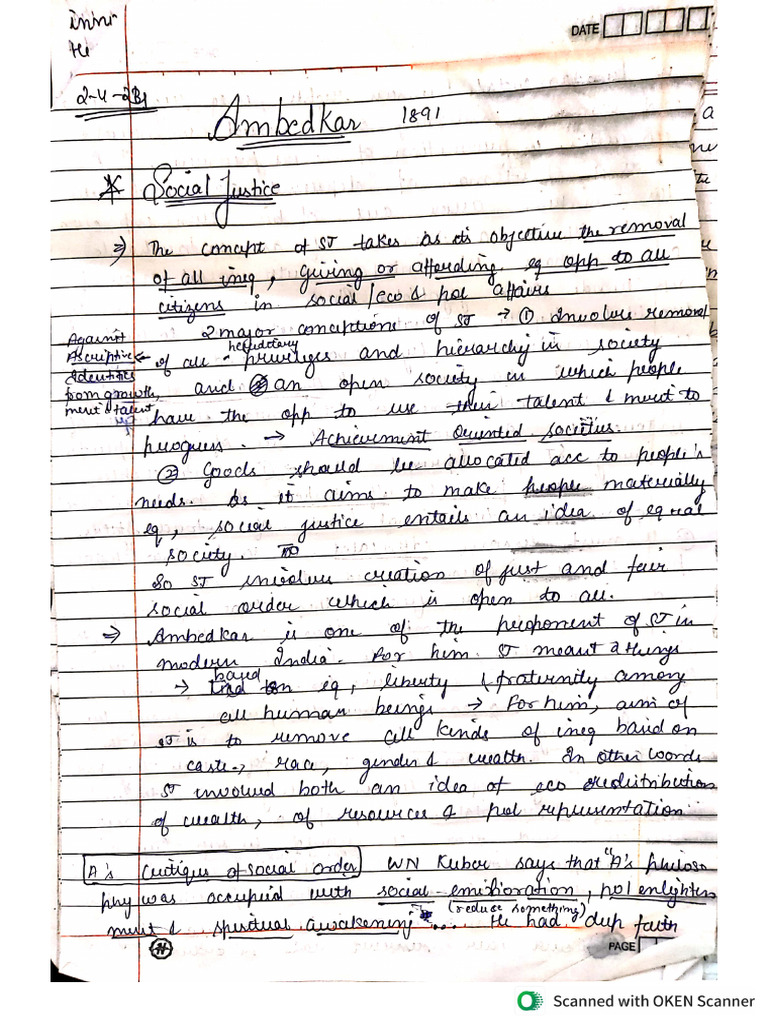 DATE
2-4-
Ambedkar 1891
* Social Justice
⇒ The concept of SJ takes as its objective the removal
of all ineq, giving or affording eq opp to all
citizens in social/eco & pol affairs
2 major conceptions of SJ → ① Involve removal
of all hereditary privileges and hierarchy in society
Against
Ascriptive ←
Identities
from growth,
merit & talent
and an open society in which people
have the opp to use their talent & merit to
progress. → Achievement Oriented societies.
② Goods should be allocated acc to people's
needs. As it aims to make people materially
eq, social justice entails an idea of equal
society.
So SJ involves creation of just and fair
social order which is open to all.
⇒ Ambedkar is one of the proponent of SJ in
modern India. For him SJ meant 2 things
→ based on eq, liberty & fraternity among
all human beings → For him, aim of
SJ is to remove all kinds of ineq based on
caste, race, gender & wealth. In other words
SJ involved both an idea of eco redistribution
of wealth, of resources & pol representation
A's Critique of Social order WN Kuber says that "A's philoso
phy was occupied with social emilioration, pol enlighten
(reduce something)
ment & spiritual awakening .... He had deep faith
PAGE
Scanned with OKEN Scanner